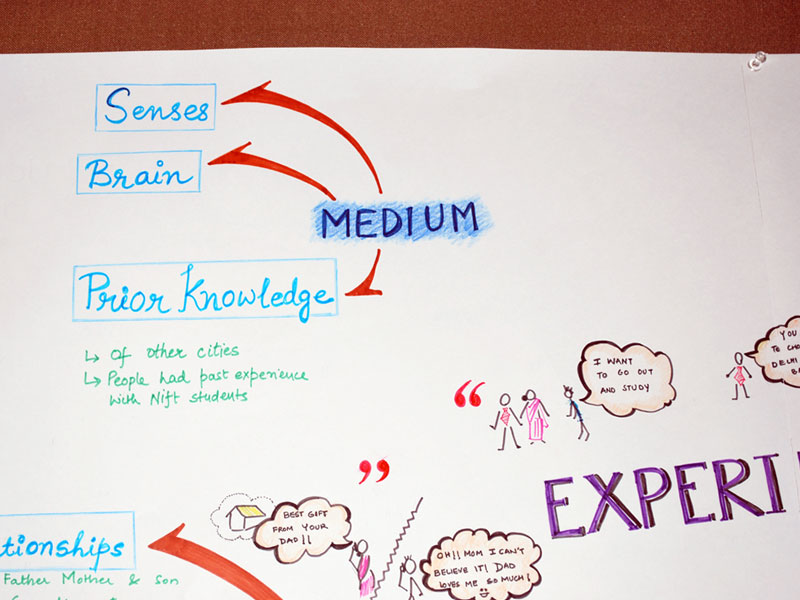 Senses
Brain
MEDIUM
Prior Knowledge
↳ Of other cities
↳ People had past experience
with Nift students
I WANT
TO GO OUT
AND STUDY
YOU
TO
DELHI
“
”
EXPERI
BEST GIFT
FROM YOUR
DAD!!
OH!! MOM I CAN'T
BELIEVE IT! DAD
LOVES ME SO MUCH!
tionships
Father Mother & son